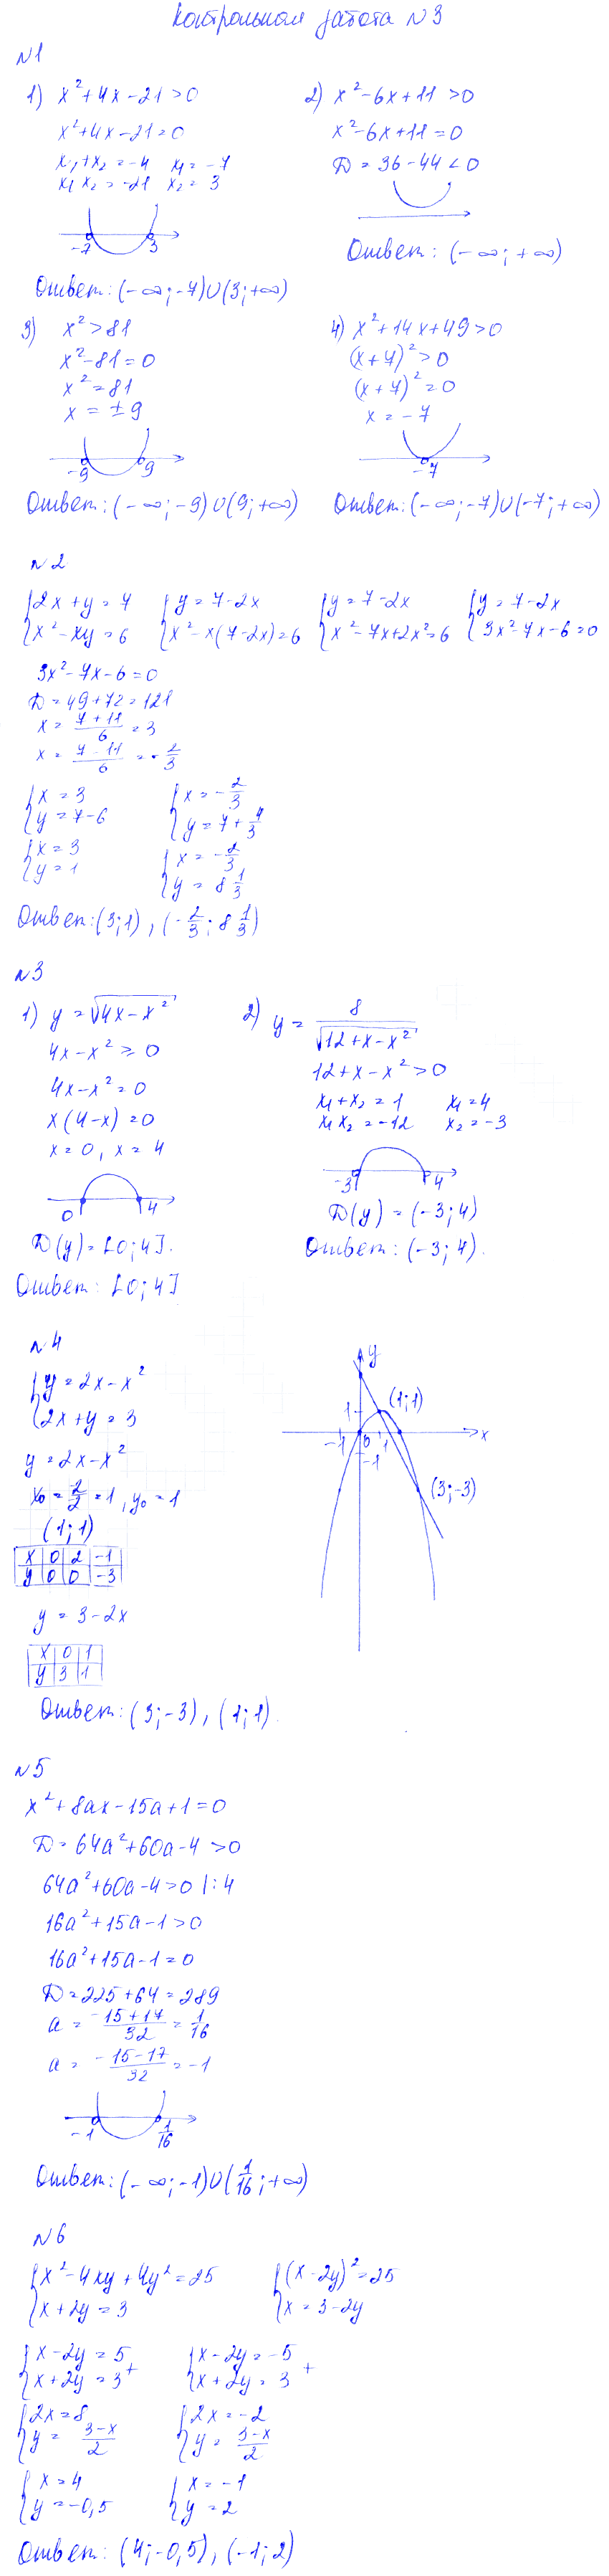 Контрольная работа №3
№1
1) x²+4x-21>0
x²+4x-21=0
x₁+x₂=-4 x₁=-7
x₁x₂=-21 x₂=3
-7 3
Ответ: (-∞;-7)∪(3;+∞)
2) x²-6x+11>0
x²-6x+11=0
D=36-44<0
Ответ: (-∞;+∞)
3) x²>81
x²-81=0
x²=81
x=±9
-9 9
Ответ: (-∞;-9)∪(9;+∞)
4) x²+14x+49>0
(x+7)²>0
(x+7)²=0
x=-7
-7
Ответ: (-∞;-7)∪(-7;+∞)
№2
{2x+y=7 {y=7-2x {y=7-2x {y=7-2x
{x²-xy=6 {x²-x(7-2x)=6 {x²-7x+2x²=6 {3x²-7x-6=0
3x²-7x-6=0
D=49+72=121
x=(7+11)/6=3
x=(7-11)/6=-2/3
{x=3 {x=-2/3
{y=7-6 {y=7+4/3
{x=3 {x=-2/3
{y=1 {y=8 1/3
Ответ: (3;1), (-2/3; 8 1/3)
№3
1) y=√(4x-x²)
4x-x²≥0
4x-x²=0
x(4-x)=0
x=0, x=4
0 4
D(y)=[0;4].
Ответ: [0;4]
2) y=8/√(12+x-x²)
12+x-x²>0
x₁+x₂=1 x₁=4
x₁x₂=-12 x₂=-3
-3 4
D(y)=(-3;4)
Ответ: (-3;4).
№4
{y=2x-x²
{2x+y=3
y=2x-x²
x₀=2/2=1, y₀=1
(1;1)
x 0 2 -1
y 0 0 -3
y=3-2x
x 0 1
y 3 1
y
1 (1;1)
-1 0 1 x
-1
(3;-3)
Ответ: (3;-3), (1;1).
№5
x²+8ax-15a+1=0
D=64a²+60a-4>0
64a²+60a-4>0 |:4
16a²+15a-1>0
16a²+15a-1=0
D=225+64=289
a=(-15+17)/32=1/16
a=(-15-17)/32=-1
-1 1/16
Ответ: (-∞;-1)∪(1/16;+∞)
№6
{x²-4xy+4y²=25 {(x-2y)²=25
{x+2y=3 {x=3-2y
{x-2y=5 {x-2y=-5
{x+2y=3 + {x+2y=3 +
{2x=8 {2x=-2
{y=(3-x)/2 {y=(3-x)/2
{x=4 {x=-1
{y=-0,5 {y=2
Ответ: (4;-0,5), (-1;2)